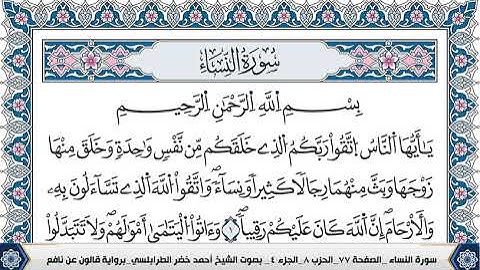 سُورَةُ النِّسَاءِ
بِسْمِ اِللَّهِ اِلرَّحْمَٰنِ اِلرَّحِيمِ
يَٰأَيُّهَا اَلنَّاسُ اُتَّقُواْ رَبَّكُمُ اُلذِے خَلَقَكُم مِّن نَّفْسٖ وَٰحِدَةٖ وَخَلَقَ مِنْهَا
زَوْجَهَا وَبَثَّ مِنْهُمَا رِجَالاٗ كَثِيراٗ وَنِسَآءٗۖ وَاتَّقُواْ اُللَّهَ اَلذِے تَسَّآءَلُونَ بِهِۦ
وَالَارْحَامَۖ إِنَّ اَللَّهَ كَانَ عَلَيْكُمْ رَقِيباٗۖ ١ وَءَاتُواْ اُلْيَتَٰمَىٰٓ أَمْوَٰلَهُمْۖ وَلَا تَتَبَدَّلُواْ
سورة النساء _الصفحة ٧٧_ الحزب ٨_الجزء ٤_ بصوت الشيخ أحمد خضر الطرابلسي _برواية قالون عن نافع